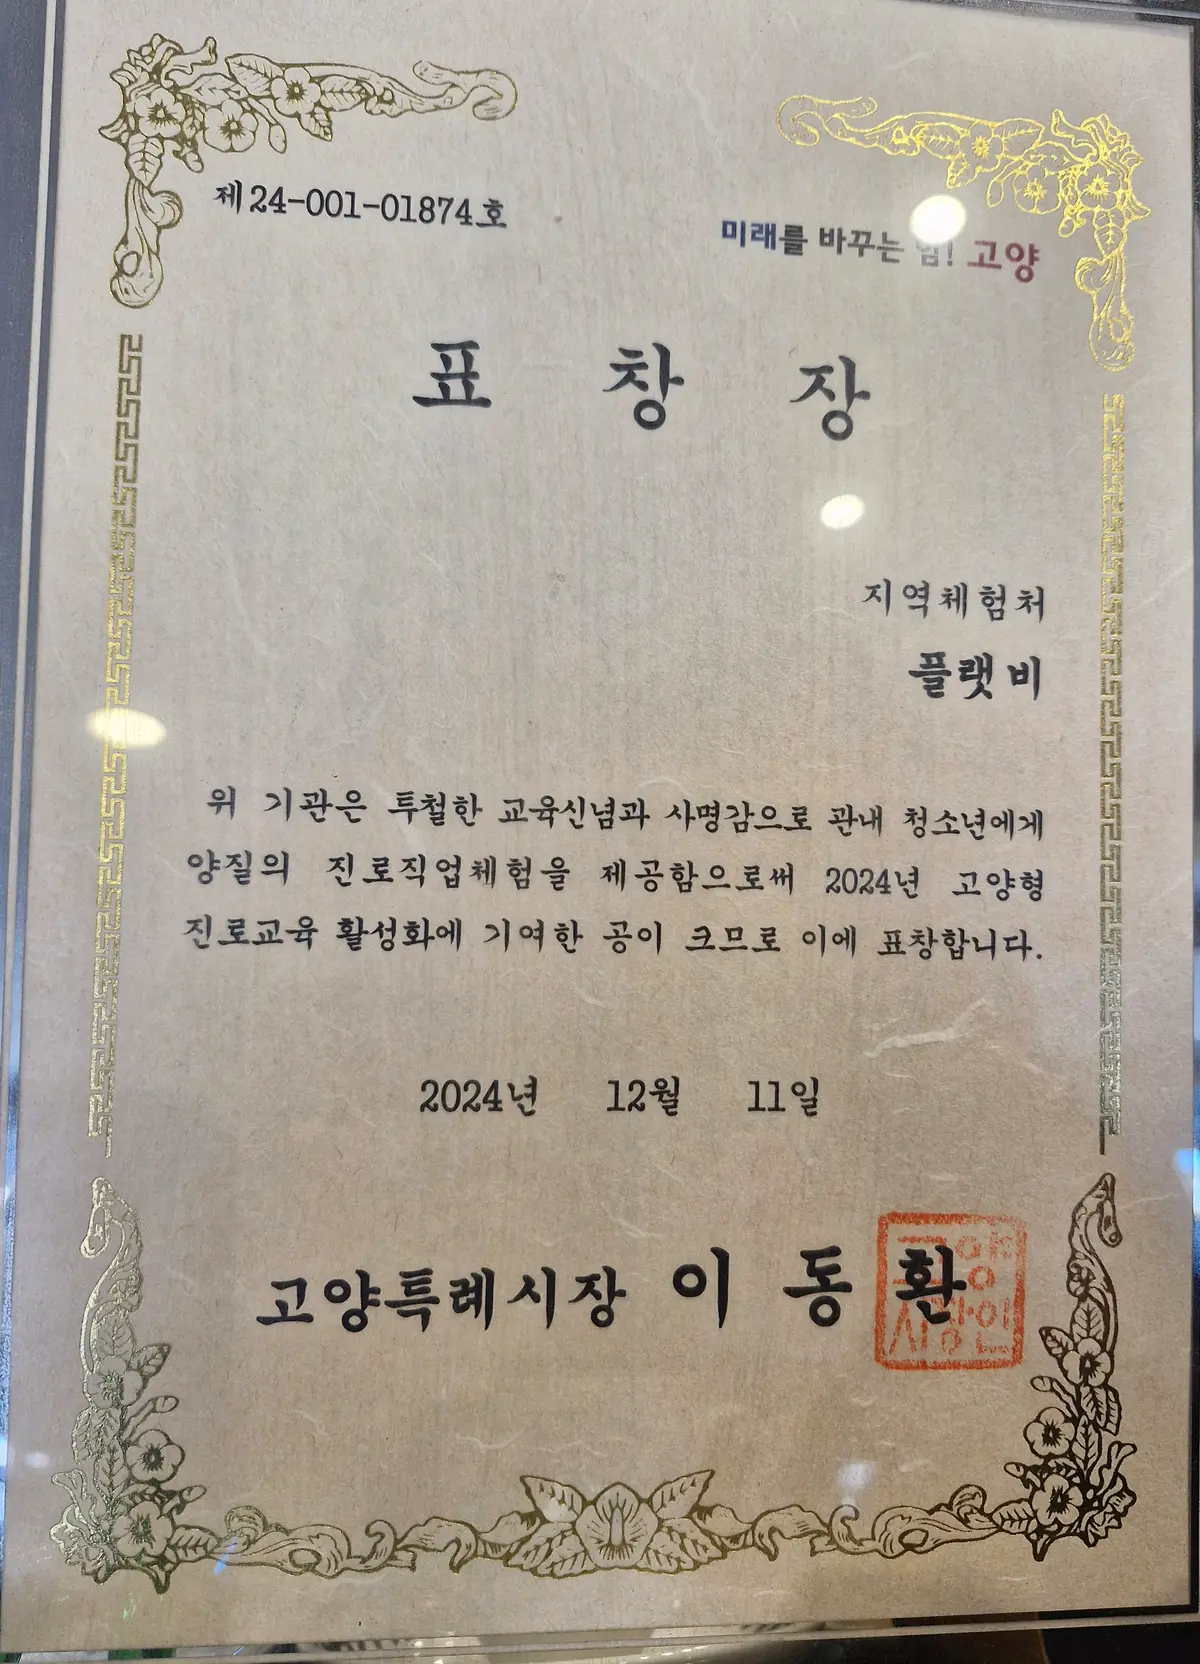 제 24-001-01874 호
미래를 바꾸는 힘! 고양
표 창 장
지역체험처
플랫비
위 기관은 투철한 교육신념과 사명감으로 관내 청소년에게
양질의 진로직업체험을 제공함으로써 2024년 고양형
진로교육 활성화에 기여한 공이 크므로 이에 표창합니다.
2024년 12월 11일
고양특례시장 이 동 환
고양
시장인